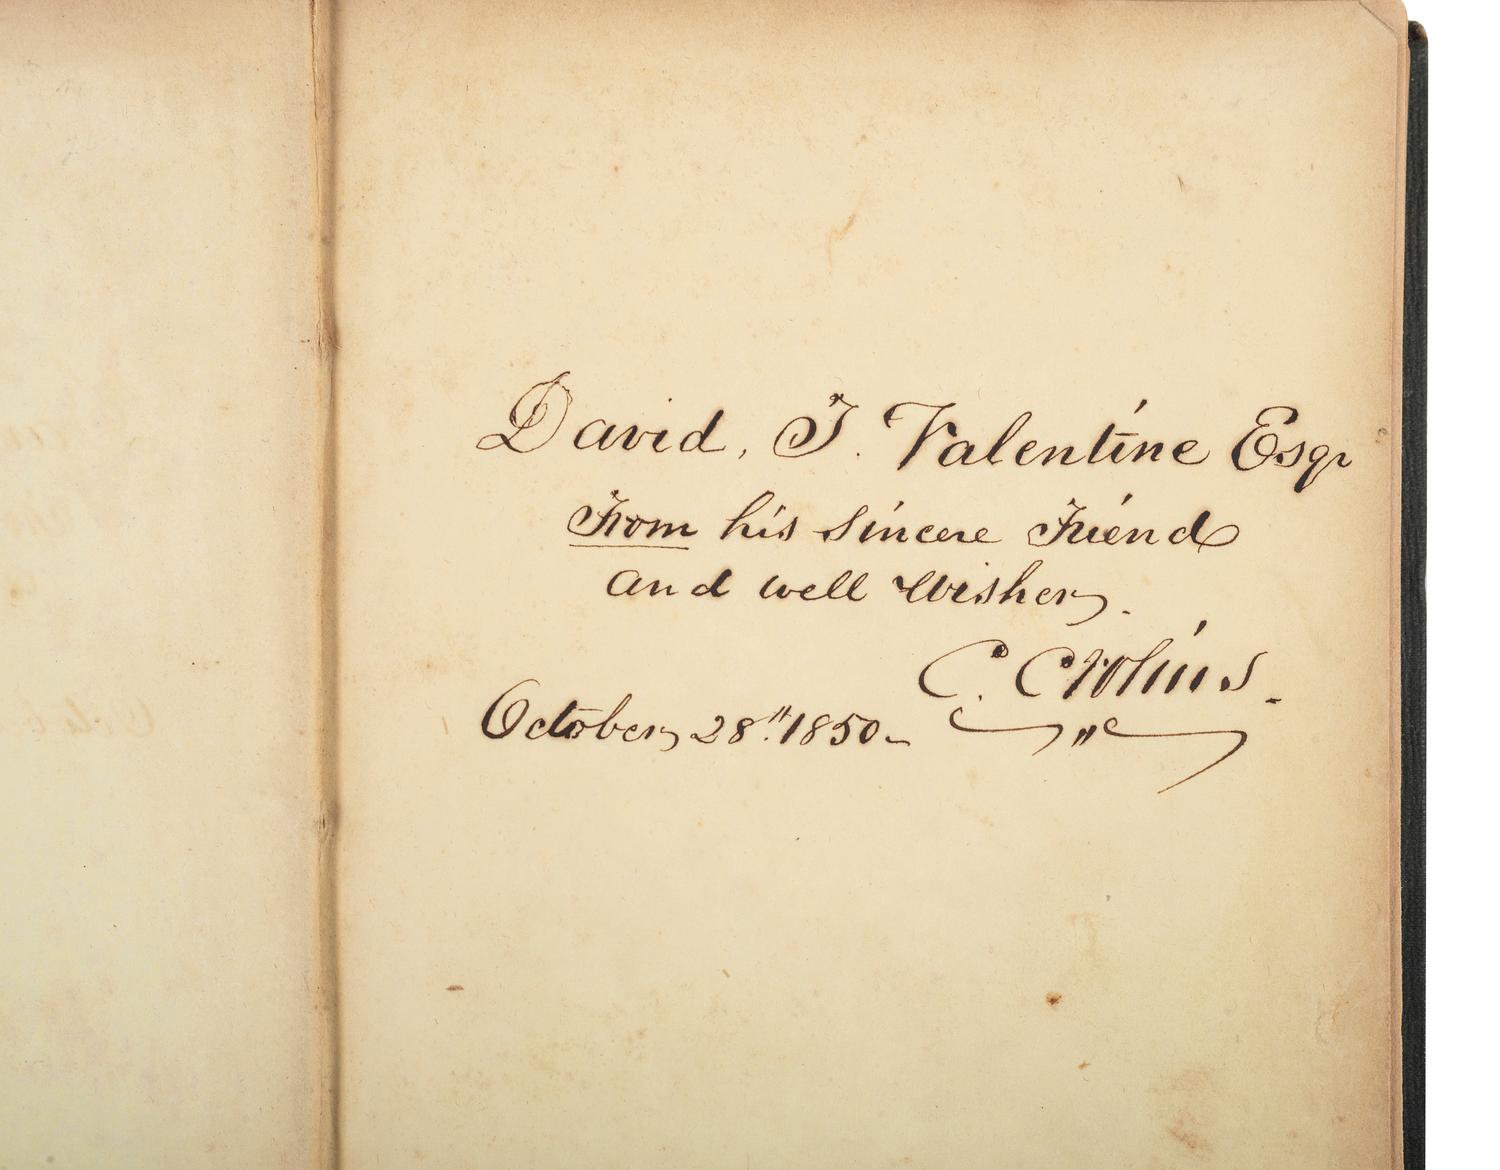 David, T. Valentine Esqr
From his sincere Friend
and well Wisher.
C. Crolius.
October 28th 1850